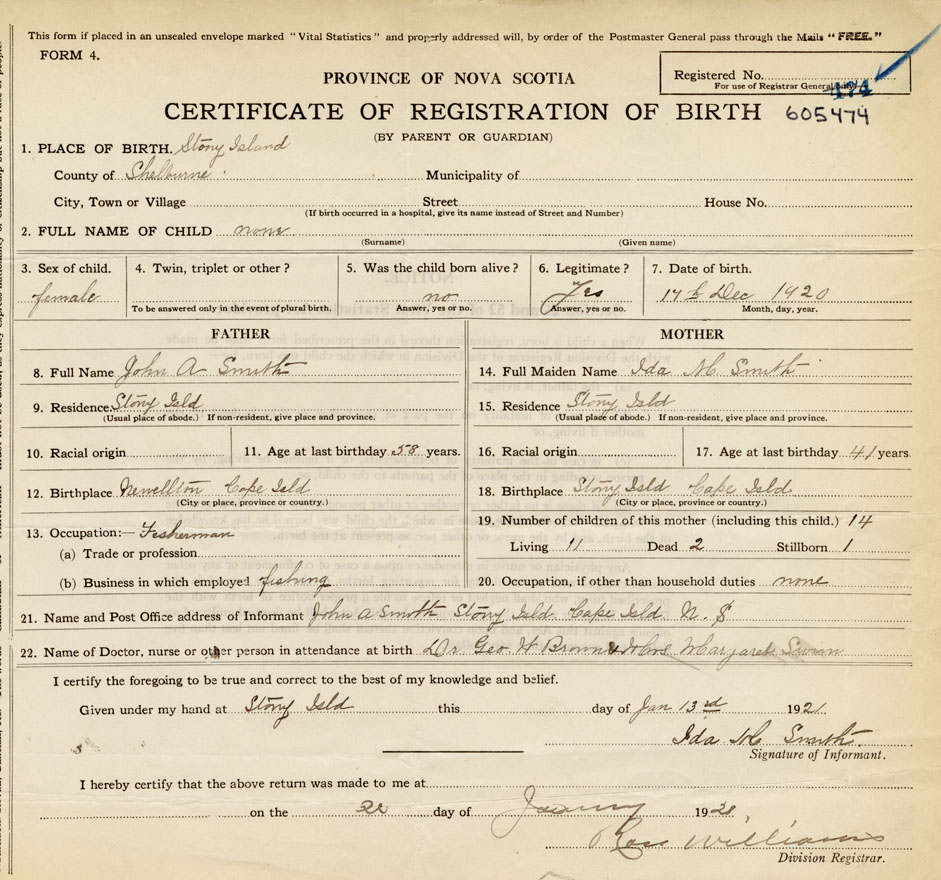 This form if placed in an unsealed envelope marked "Vital Statistics" and properly addressed will, by order of the Postmaster General pass through the Mails "FREE."
FORM 4.
Registered No.
For use of Registrar General only.
474
PROVINCE OF NOVA SCOTIA
CERTIFICATE OF REGISTRATION OF BIRTH 605474
(BY PARENT OR GUARDIAN)
1. PLACE OF BIRTH. Stony Island
County of Shelburne Municipality of
City, Town or Village Street House No.
(If birth occurred in a hospital, give its name instead of Street and Number)
2. FULL NAME OF CHILD none
(Surname) (Given name)
3. Sex of child. 4. Twin, triplet or other? 5. Was the child born alive? 6. Legitimate? 7. Date of birth.
female no Yes 17th Dec 1920
To be answered only in the event of plural birth. Answer, yes or no. Answer, yes or no. Month, day, year.
FATHER MOTHER
8. Full Name John A Smith 14. Full Maiden Name Ida M Smith
9. Residence. Stony Isld 15. Residence Stony Isld
(Usual place of abode.) If non-resident, give place and province. (Usual place of abode.) If non-resident, give place and province.
10. Racial origin 11. Age at last birthday 58 years. 16. Racial origin 17. Age at last birthday 41 years
12. Birthplace Newellton Cape Isld 18. Birthplace Stony Isld Cape Isld
(City or place, province or country.) (City or place, province or country.)
13. Occupation:— Fisherman 19. Number of children of this mother (including this child.) 14
(a) Trade or profession Living 11 Dead 2 Stillborn 1
(b) Business in which employed fishing 20. Occupation, if other than household duties none
21. Name and Post Office address of Informant John A Smith Stony Isld. Cape Isld N. S
22. Name of Doctor, nurse or other person in attendance at birth Dr Geo W Brown & Mrs Margaret Swain
I certify the foregoing to be true and correct to the best of my knowledge and belief.
Given under my hand at Stony Isld this day of Jan 13rd 1921
Ida M Smith
Signature of Informant.
I hereby certify that the above return was made to me at
on the 22 day of January 1921
Ross Williams
Division Registrar.